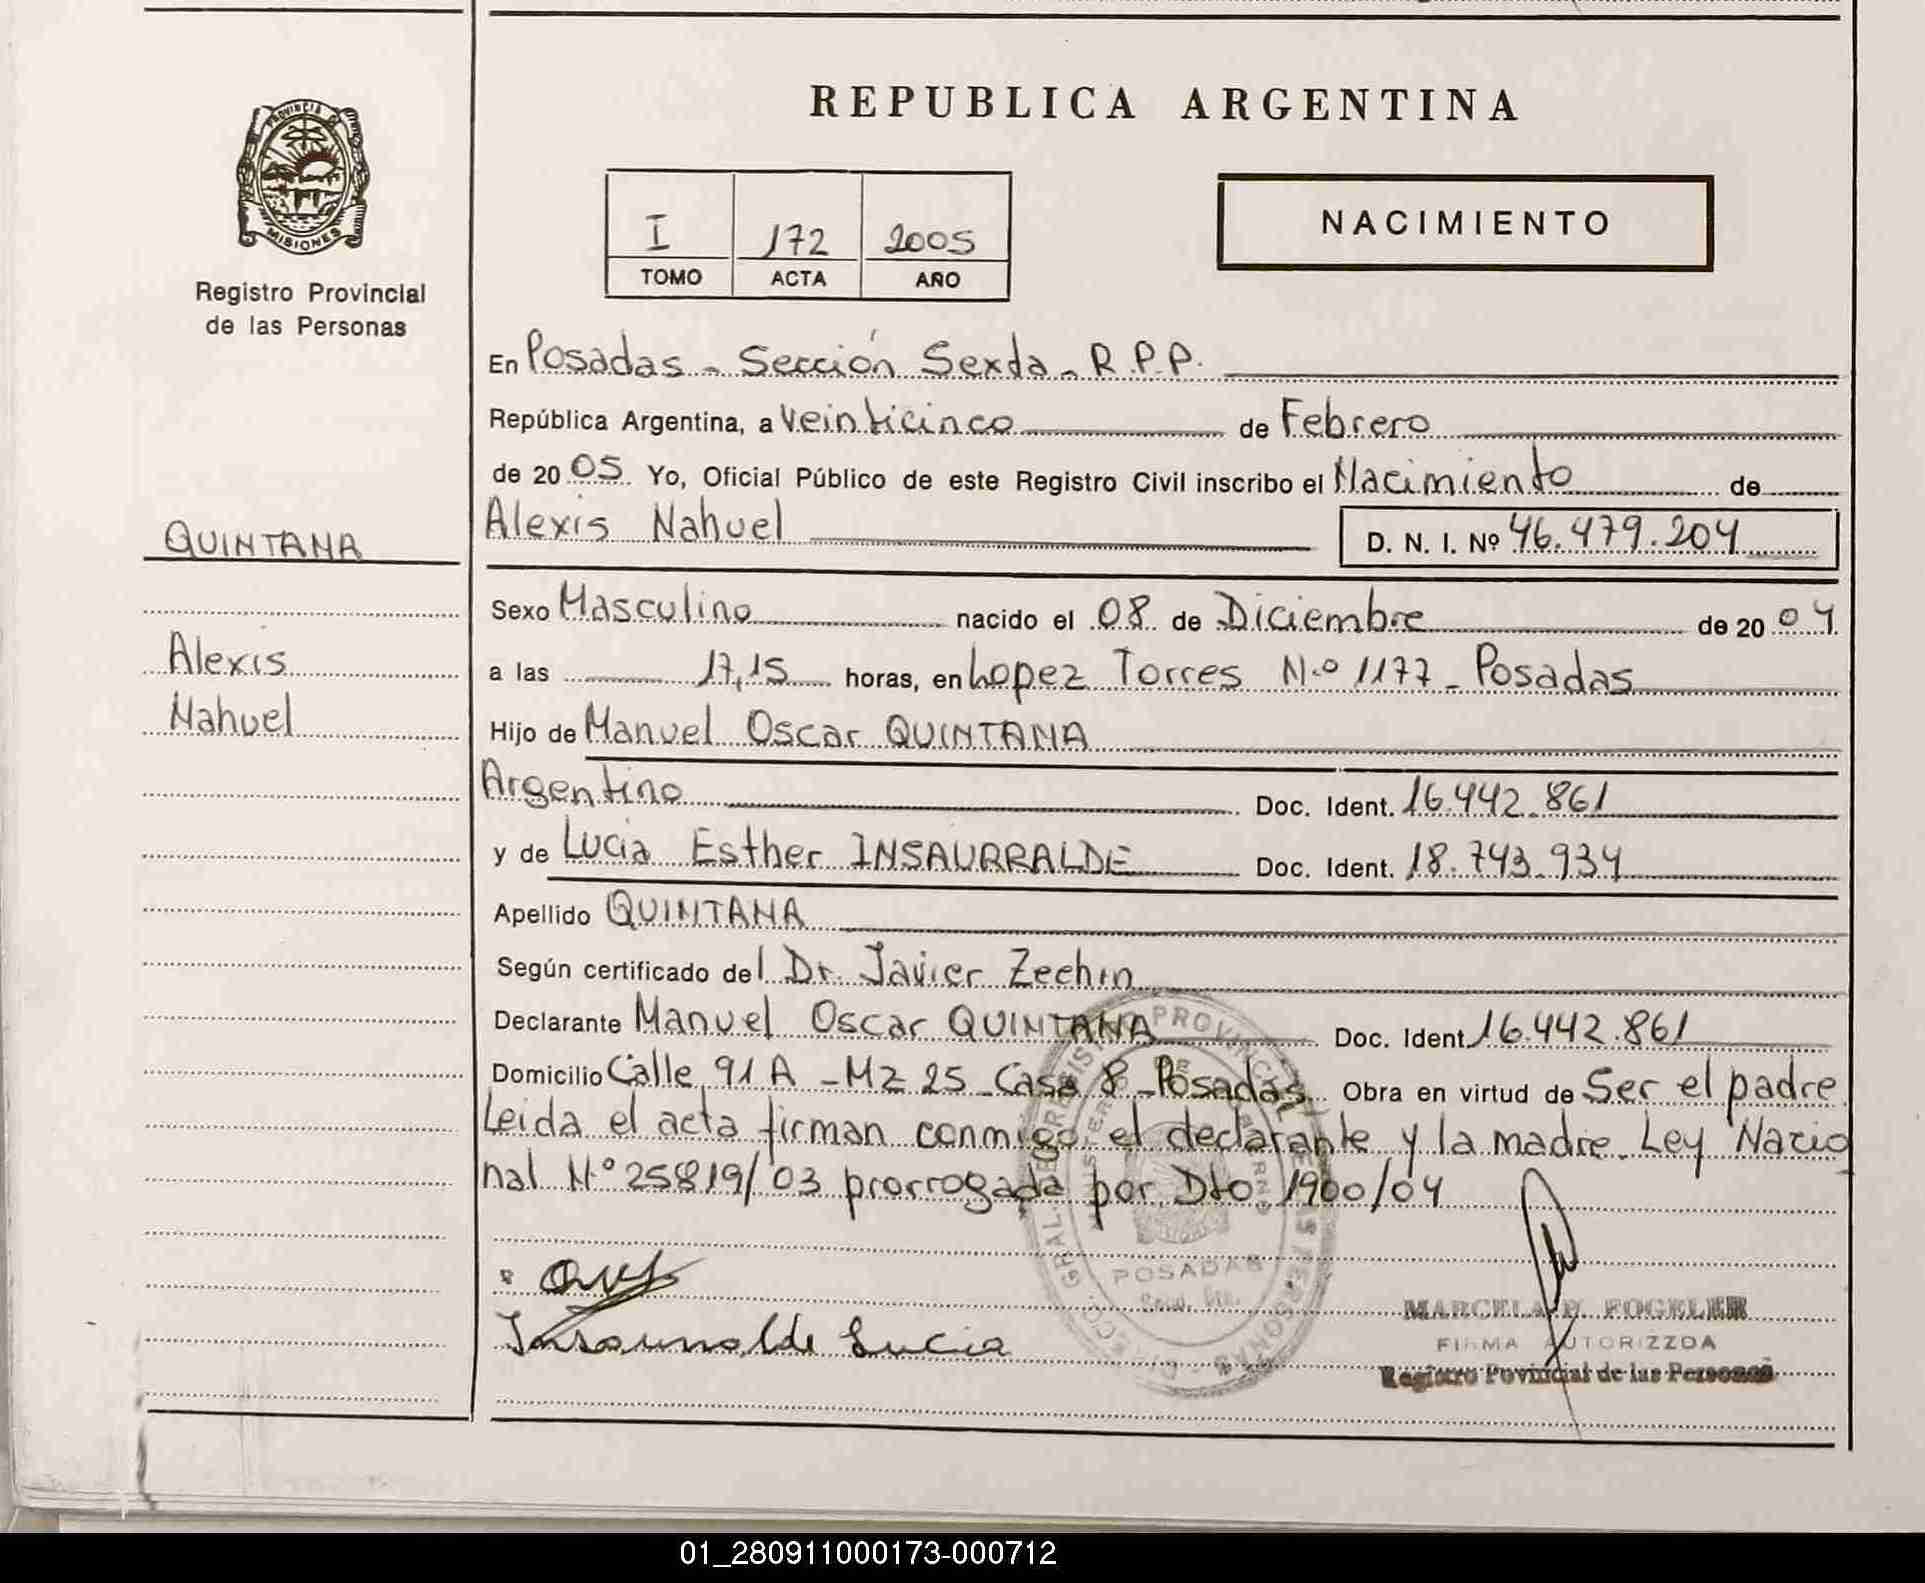 REPUBLICA ARGENTINA
PROVINCIA DE
MISIONES
Registro Provincial
de las Personas
I 172 2005
TOMO ACTA AÑO
NACIMIENTO
En Posadas - Sección Sexta - R.P.P.
República Argentina, a veinticinco de Febrero
de 20 05 Yo, Oficial Público de este Registro Civil inscribo el Nacimiento de
QUINTANA
Alexis Nahuel D. N. I. Nº 46.479.204
Sexo Masculino nacido el 08 de Diciembre de 20 04
Alexis
a las 17,15 horas, en Lopez Torres N.º 1177 - Posadas
Nahuel
Hijo de Manuel Oscar QUINTANA
Argentino Doc. Ident. 16.442.861
y de Lucia Esther INSAURRALDE Doc. Ident. 18.743.934
Apellido QUINTANA
Según certificado del Dr. Javier Zechin
Declarante Manuel Oscar QUINTANA Doc. Ident. 16.442.861
Domicilio Calle 91 A - Mz 25 - Casa 8 - Posadas Obra en virtud de Ser el padre
Leida el acta firman conmigo el declarante y la madre. Ley Nacio
nal Nº 25819/03 prorrogada por Dto 1900/04
POSADAS
Insaurralde Lucia
MARCELA P. FOGELER
FIRMA AUTORIZZDA
Registro Povincial de las Personas
01_280911000173-000712